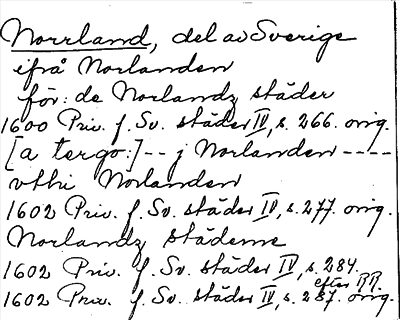 Norrland, del av Sverige
ifrå Norlanden
för: de Norlandz städer
1600 Priv. f. Sv. städer IV, s. 266. orig.
[a tergo:] -- j Norlanden ----
vthi Norlanden
1602 Priv. f. Sv. städer IV, s. 277. orig.
Norlandz städerne
1602 Priv. f. Sv. städer IV, s. 284.
efter RR.
1602 Priv. f. Sv. städer IV, s. 287. orig.